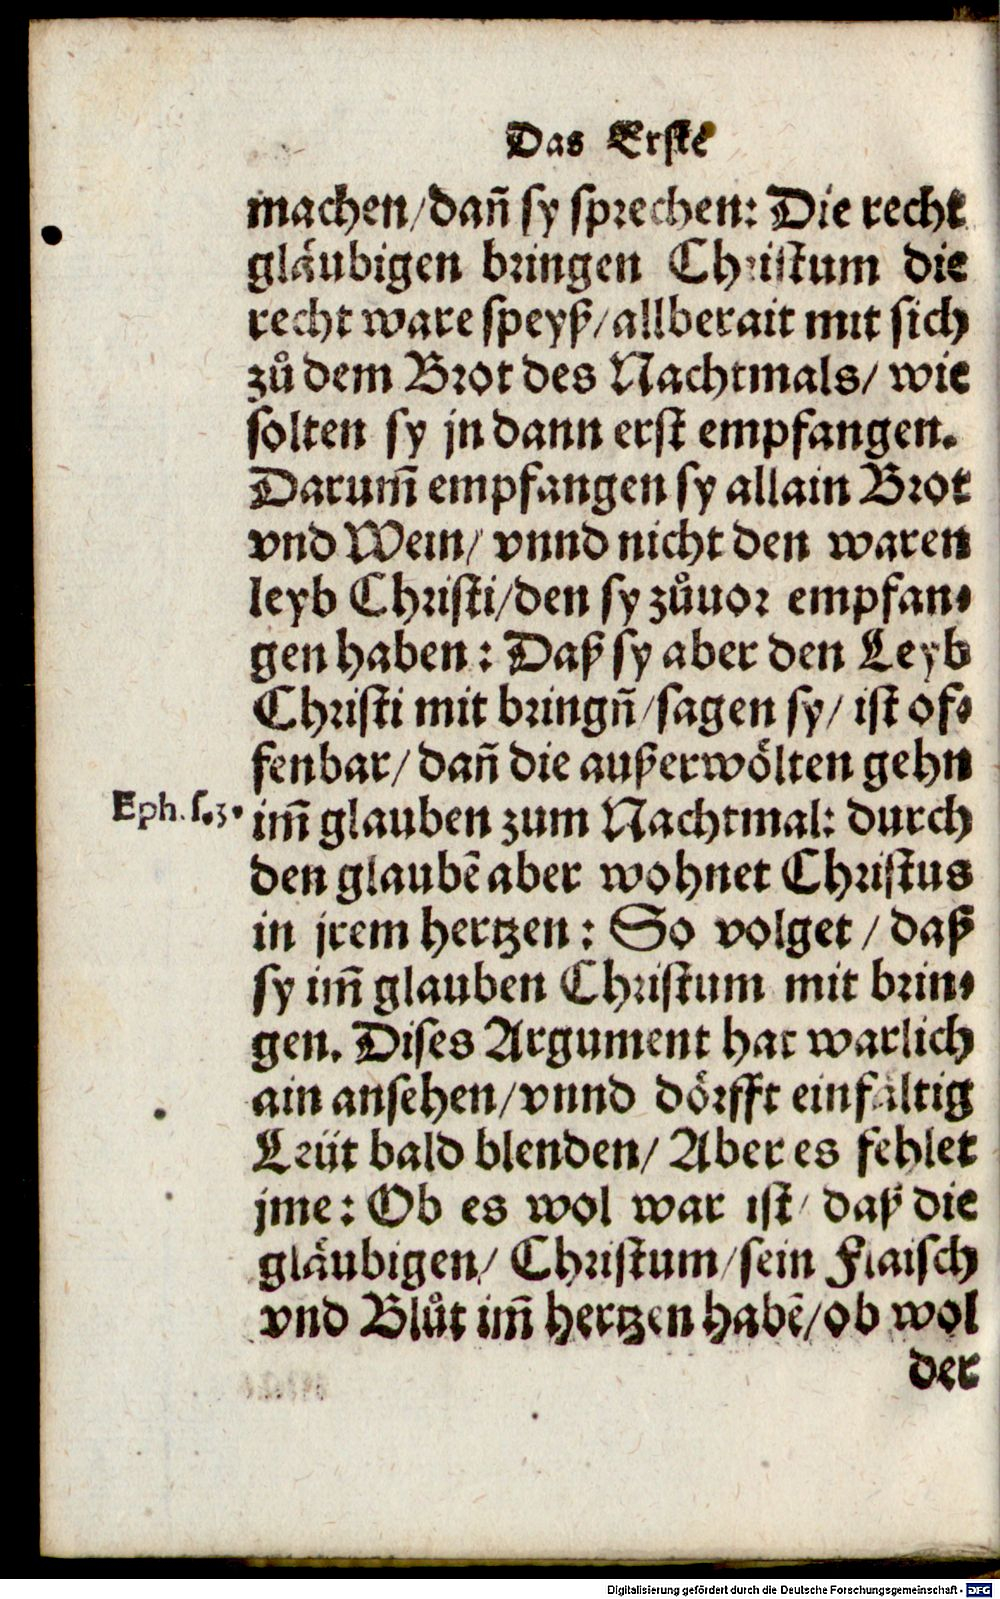 Das Erste
machen/dañ sy sprechen: Die recht
gläubigen bringen Christum die
recht ware speyß/allberait mit sich
zů dem Brot des Nachtmals/ wie
solten sy jn dann erst empfangen.
Darum̃ empfangen sy allain Brot
vnd Wein/ vnnd nicht den waren
leyb Christi/den sy zůuor empfan⸗
gen haben: Daß sy aber den Leyb
Christi mit bringñ/sagen sy/ ist of⸗
fenbar/ dañ die außerwölten gehn
Eph. 3.
im̃ glauben zum Nachtmal: durch
den glaubẽ aber wohnet Christus
in jrem hertzen: So volget / daß
sy im̃ glauben Christum mit brin⸗
gen. Dises Argument hat warlich
ain ansehen/vnnd dörfft einfältig
Leüt bald blenden/ Aber es fehlet
jme: Ob es wol war ist/ daß die
gläubigen/ Christum/sein Flaisch
vnd Blůt im̃ hertzen habẽ/ob wol
der
Digitalisierung gefördert durch die Deutsche Forschungsgemeinschaft - DFG